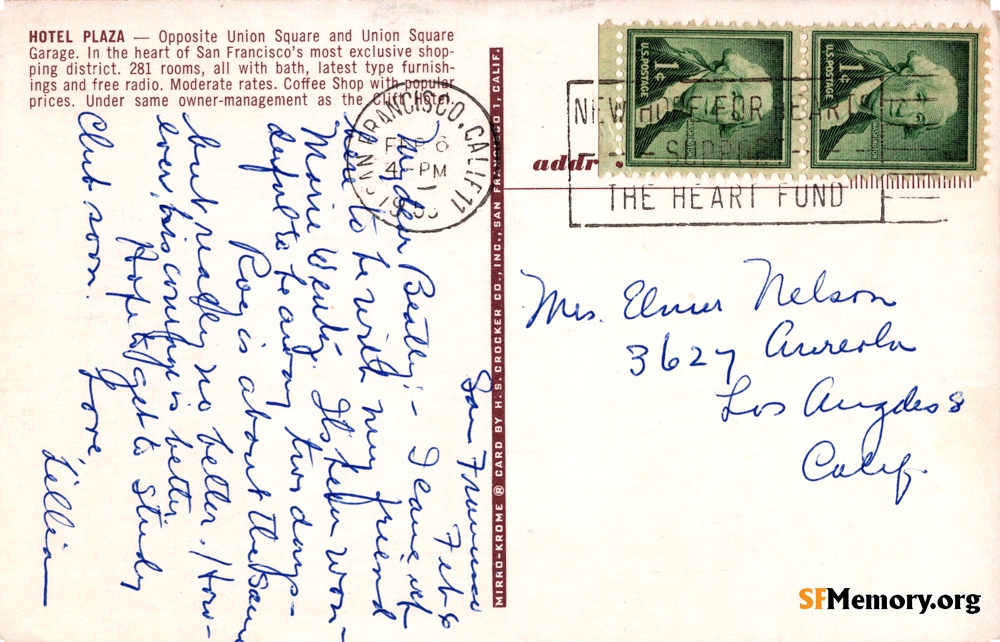 HOTEL PLAZA — Opposite Union Square and Union Square
Garage. In the heart of San Francisco's most exclusive shop-
ping district. 281 rooms, all with bath, latest type furnish-
ings and free radio. Moderate rates. Coffee Shop with popular
prices. Under same owner-management as the Clift Hotel.
San Francisco
Feb 6
My dear Beatty:- I came up
here to be with my friend
Marie It's been won-
derful to be away two days-
Roy is about the same
but really no better. How-
ever, his courage is better
Hope to get to Study
Club soon.
Love,
Lillian
MIRRO-KROME ® CARD BY H. S. CROCKER CO., INC., SAN FRANCISCO 1, CALIF.
SAN FRANCISCO, CALIF. 11
FEB
4 - PM
U.S. POSTAGE 1¢
U.S. POSTAGE 1¢
NEW HOPE FOR HEARTS
SUPPORT
THE HEART FUND
addr
Mrs. Elmer Nelson
3627 Aureola
Los Angeles 8
Calif.
SFMemory.org